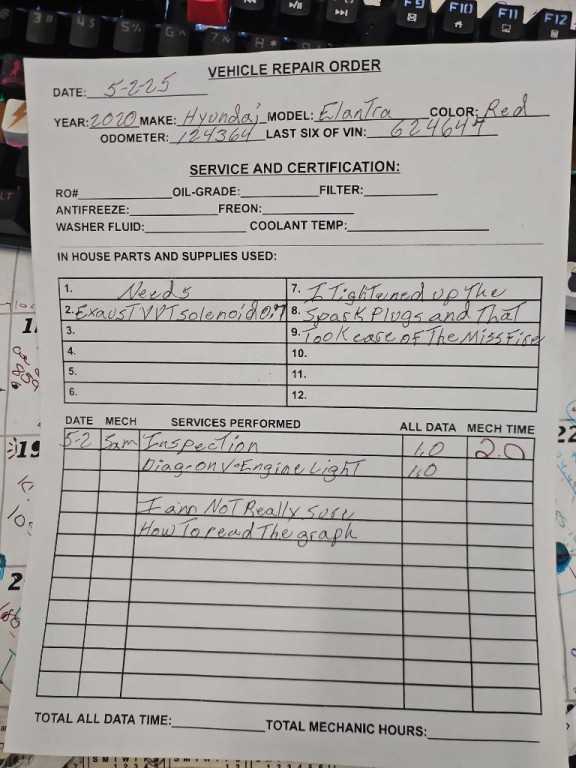 VEHICLE REPAIR ORDER
DATE: 5-2-25
YEAR: 2020 MAKE: Hyundai MODEL: Elantra COLOR: Red
ODOMETER: 124364 LAST SIX OF VIN: 624644
SERVICE AND CERTIFICATION:
RO# OIL-GRADE: FILTER:
ANTIFREEZE: FREON:
WASHER FLUID: COOLANT TEMP:
IN HOUSE PARTS AND SUPPLIES USED:
1. Needs 7. I Tightened up The
2. ExausT VVT solenoid 0.7 8. Spark Plugs and That
3. 9. Took case of The Miss Fire
4. 10.
5. 11.
6. 12.
DATE MECH SERVICES PERFORMED ALL DATA MECH TIME
5-2 Sam Inspection 1.0 2.0
Diag-on V-Engine Light 1.0
I am NoT Really Sure
How To read The graph
TOTAL ALL DATA TIME: TOTAL MECHANIC HOURS:
F9 F10 F11 F12
19
22